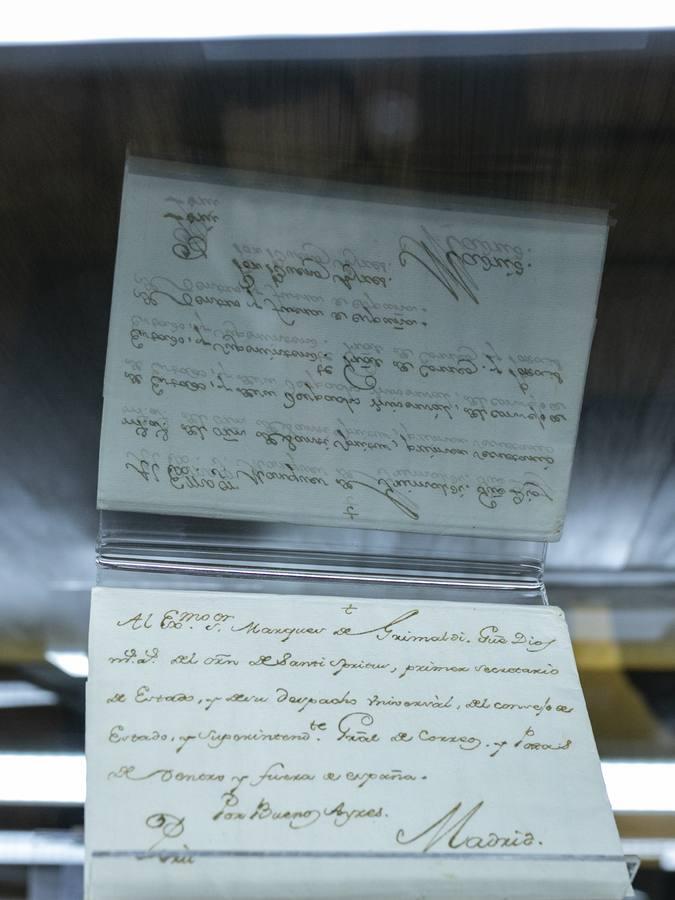 †
Al Exmo. Sor. Marques de Grimaldi. Gue Dios
m.s a.s del orñ de Santi Spiritus, primer secretario
de Estado, y de su Despacho Vniversàl, del consejo de
Estado, y Superintend.te Grãl de Correos. y Postas
de Dentro y fuera de españa.
Por Buenos Ayres.
Madrid.